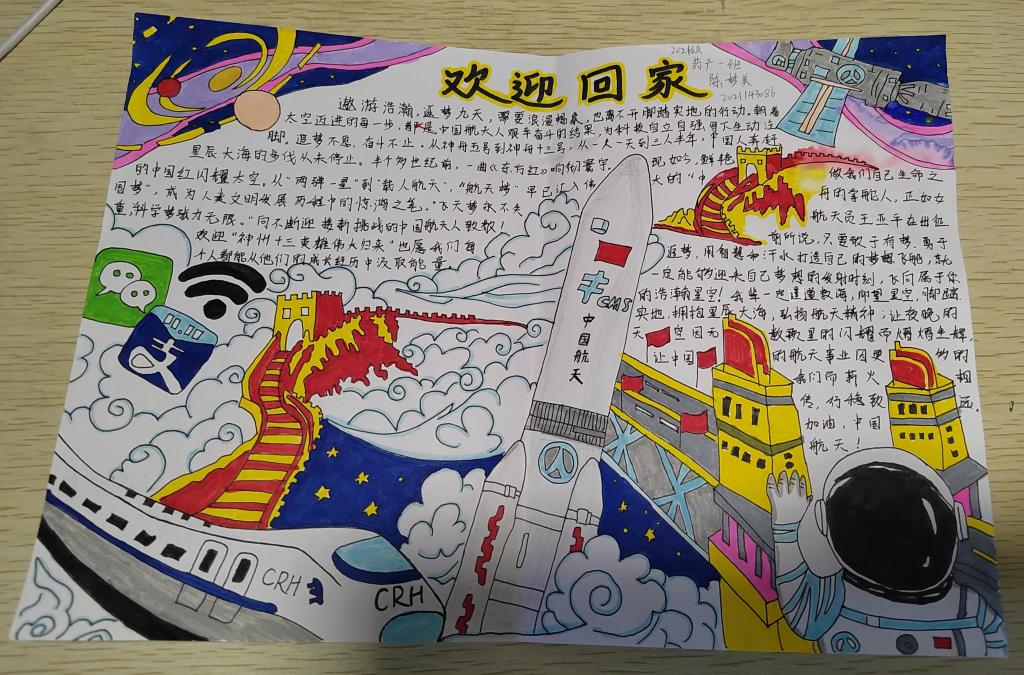 欢迎回家
2021级
药产一班
陈梦美
2021143086
遨游浩瀚，逐梦九天，需要浪漫想象，也离不开脚踏实地的行动。朝着
太空迈进的每一步，都是中国航天人艰辛奋斗的结果，为科技自立自强写下生动注
脚。追梦不息，奋斗不止。从神舟五号到神舟十三号，从一人一天到三人半年，中国人奔赶
星辰大海的步伐从未停止。半个多世纪前，一曲《东方红》响彻寰宇。
现如今，鲜艳
的中国红闪耀太空。从“两弹一星”到“载人航天”，“航天梦”早已汇入伟
大的“中
国梦”，成为人类文明发展历程中的惊鸿之笔。“飞天梦永不失
重，科学梦张力无限。”向不断迎接新挑战的中国航天人致敬！
欢迎“神州十三英雄伟大归来”也愿我们每
个人都能从他们的成长经历中汲取能量，
做我们自己生命之
舟的掌舵人，正如女
航天员王亚平在出征
前所说，只要敢于有梦，勇于
追梦，用智慧和汗水打造自己的梦想飞船，就
一定能够迎来自己梦想的发射时刻，飞向属于你
的浩瀚星空！我辈一定逢道数海，仰望星空，脚踏
实地，拥抱星辰大海，弘扬航天精神，让夜晚的
天空因无数颗星的闪耀而熠熠生辉，
让中国的航天事业因更多的
我们而薪火相
传，行稳致远。
加油，中国
航天！
CMS
中国航天
支
CRH
CRH